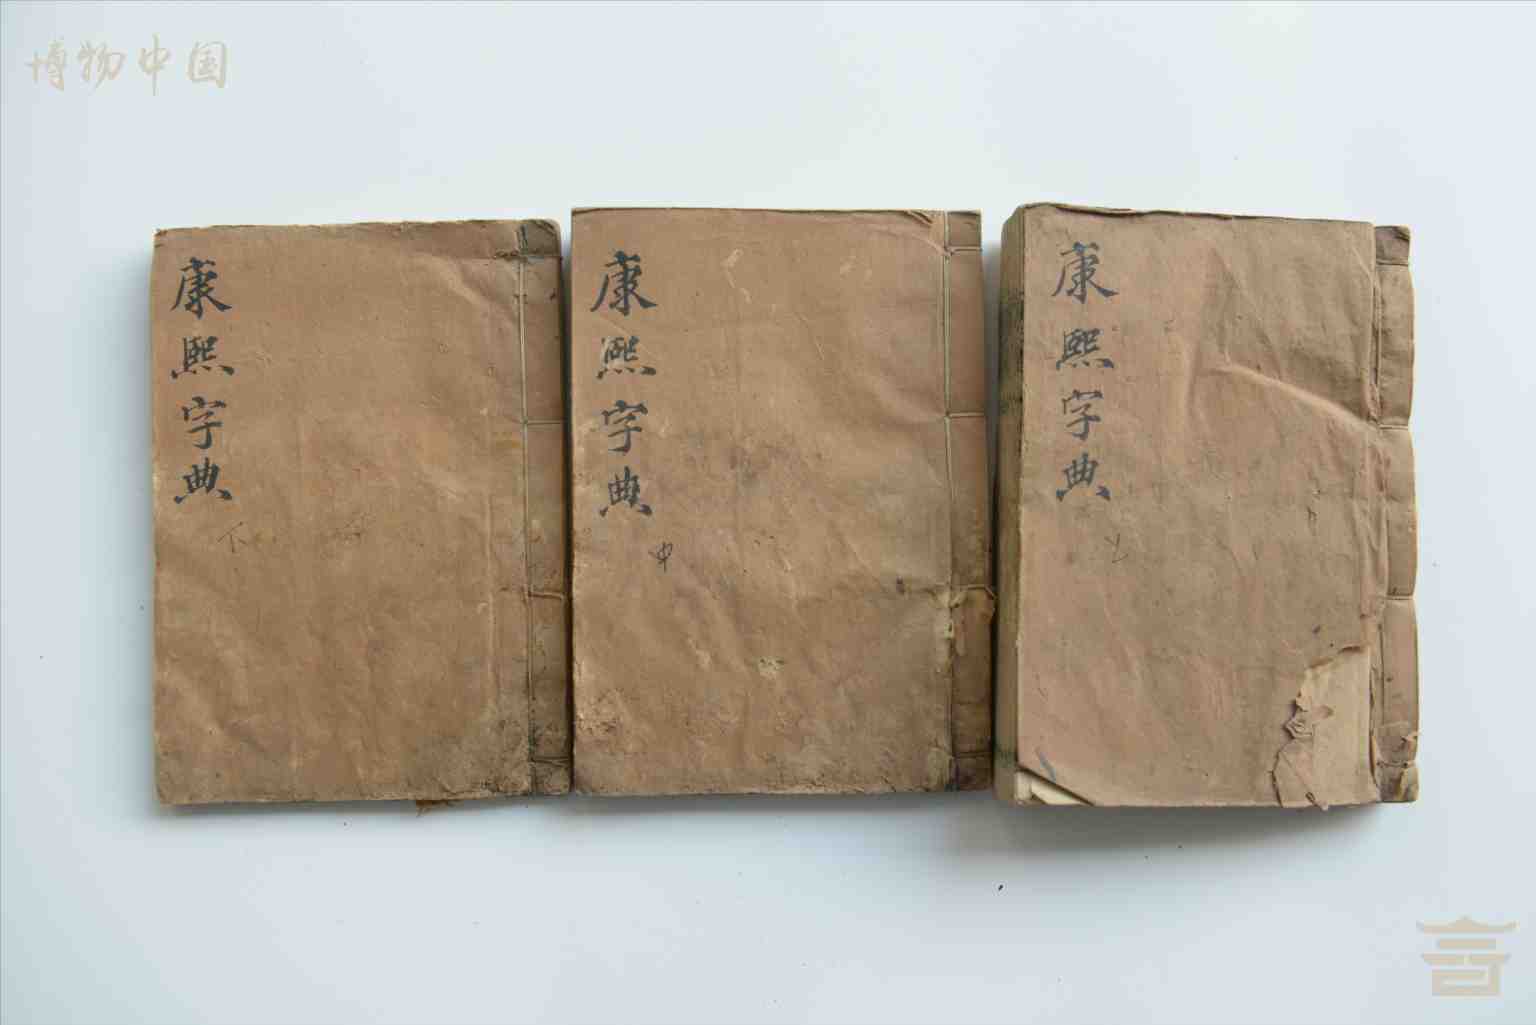 博物中国
康熙字典
下
康熙字典
中
康熙字典
上